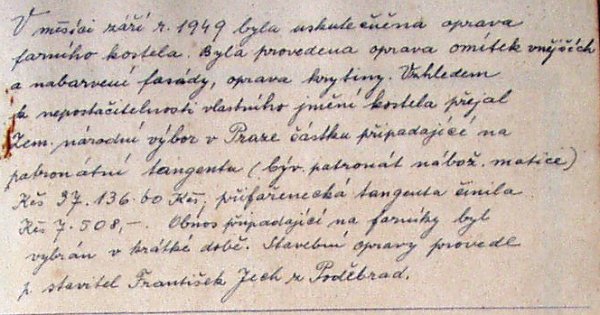 V měsíci září r. 1949 byla uskutečněna oprava
farního kostela. Byla provedena oprava omítek vnějších
a nabarvení fasády, oprava krytiny. Vzhledem
k nepostačitelnosti vlastního jmění kostela přejal
Zem. národní výbor v Praze částku připadající na
patronátní tangentu (býv. patronát nábož. matice)
Kčs 37.136.60 Kčs, přifařenecká tangenta činila
Kčs 7.508,-. Obnos připadající na farníky byl
vybrán v krátké době. Stavební opravy provedl
p. stavitel František Jech z Poděbrad.